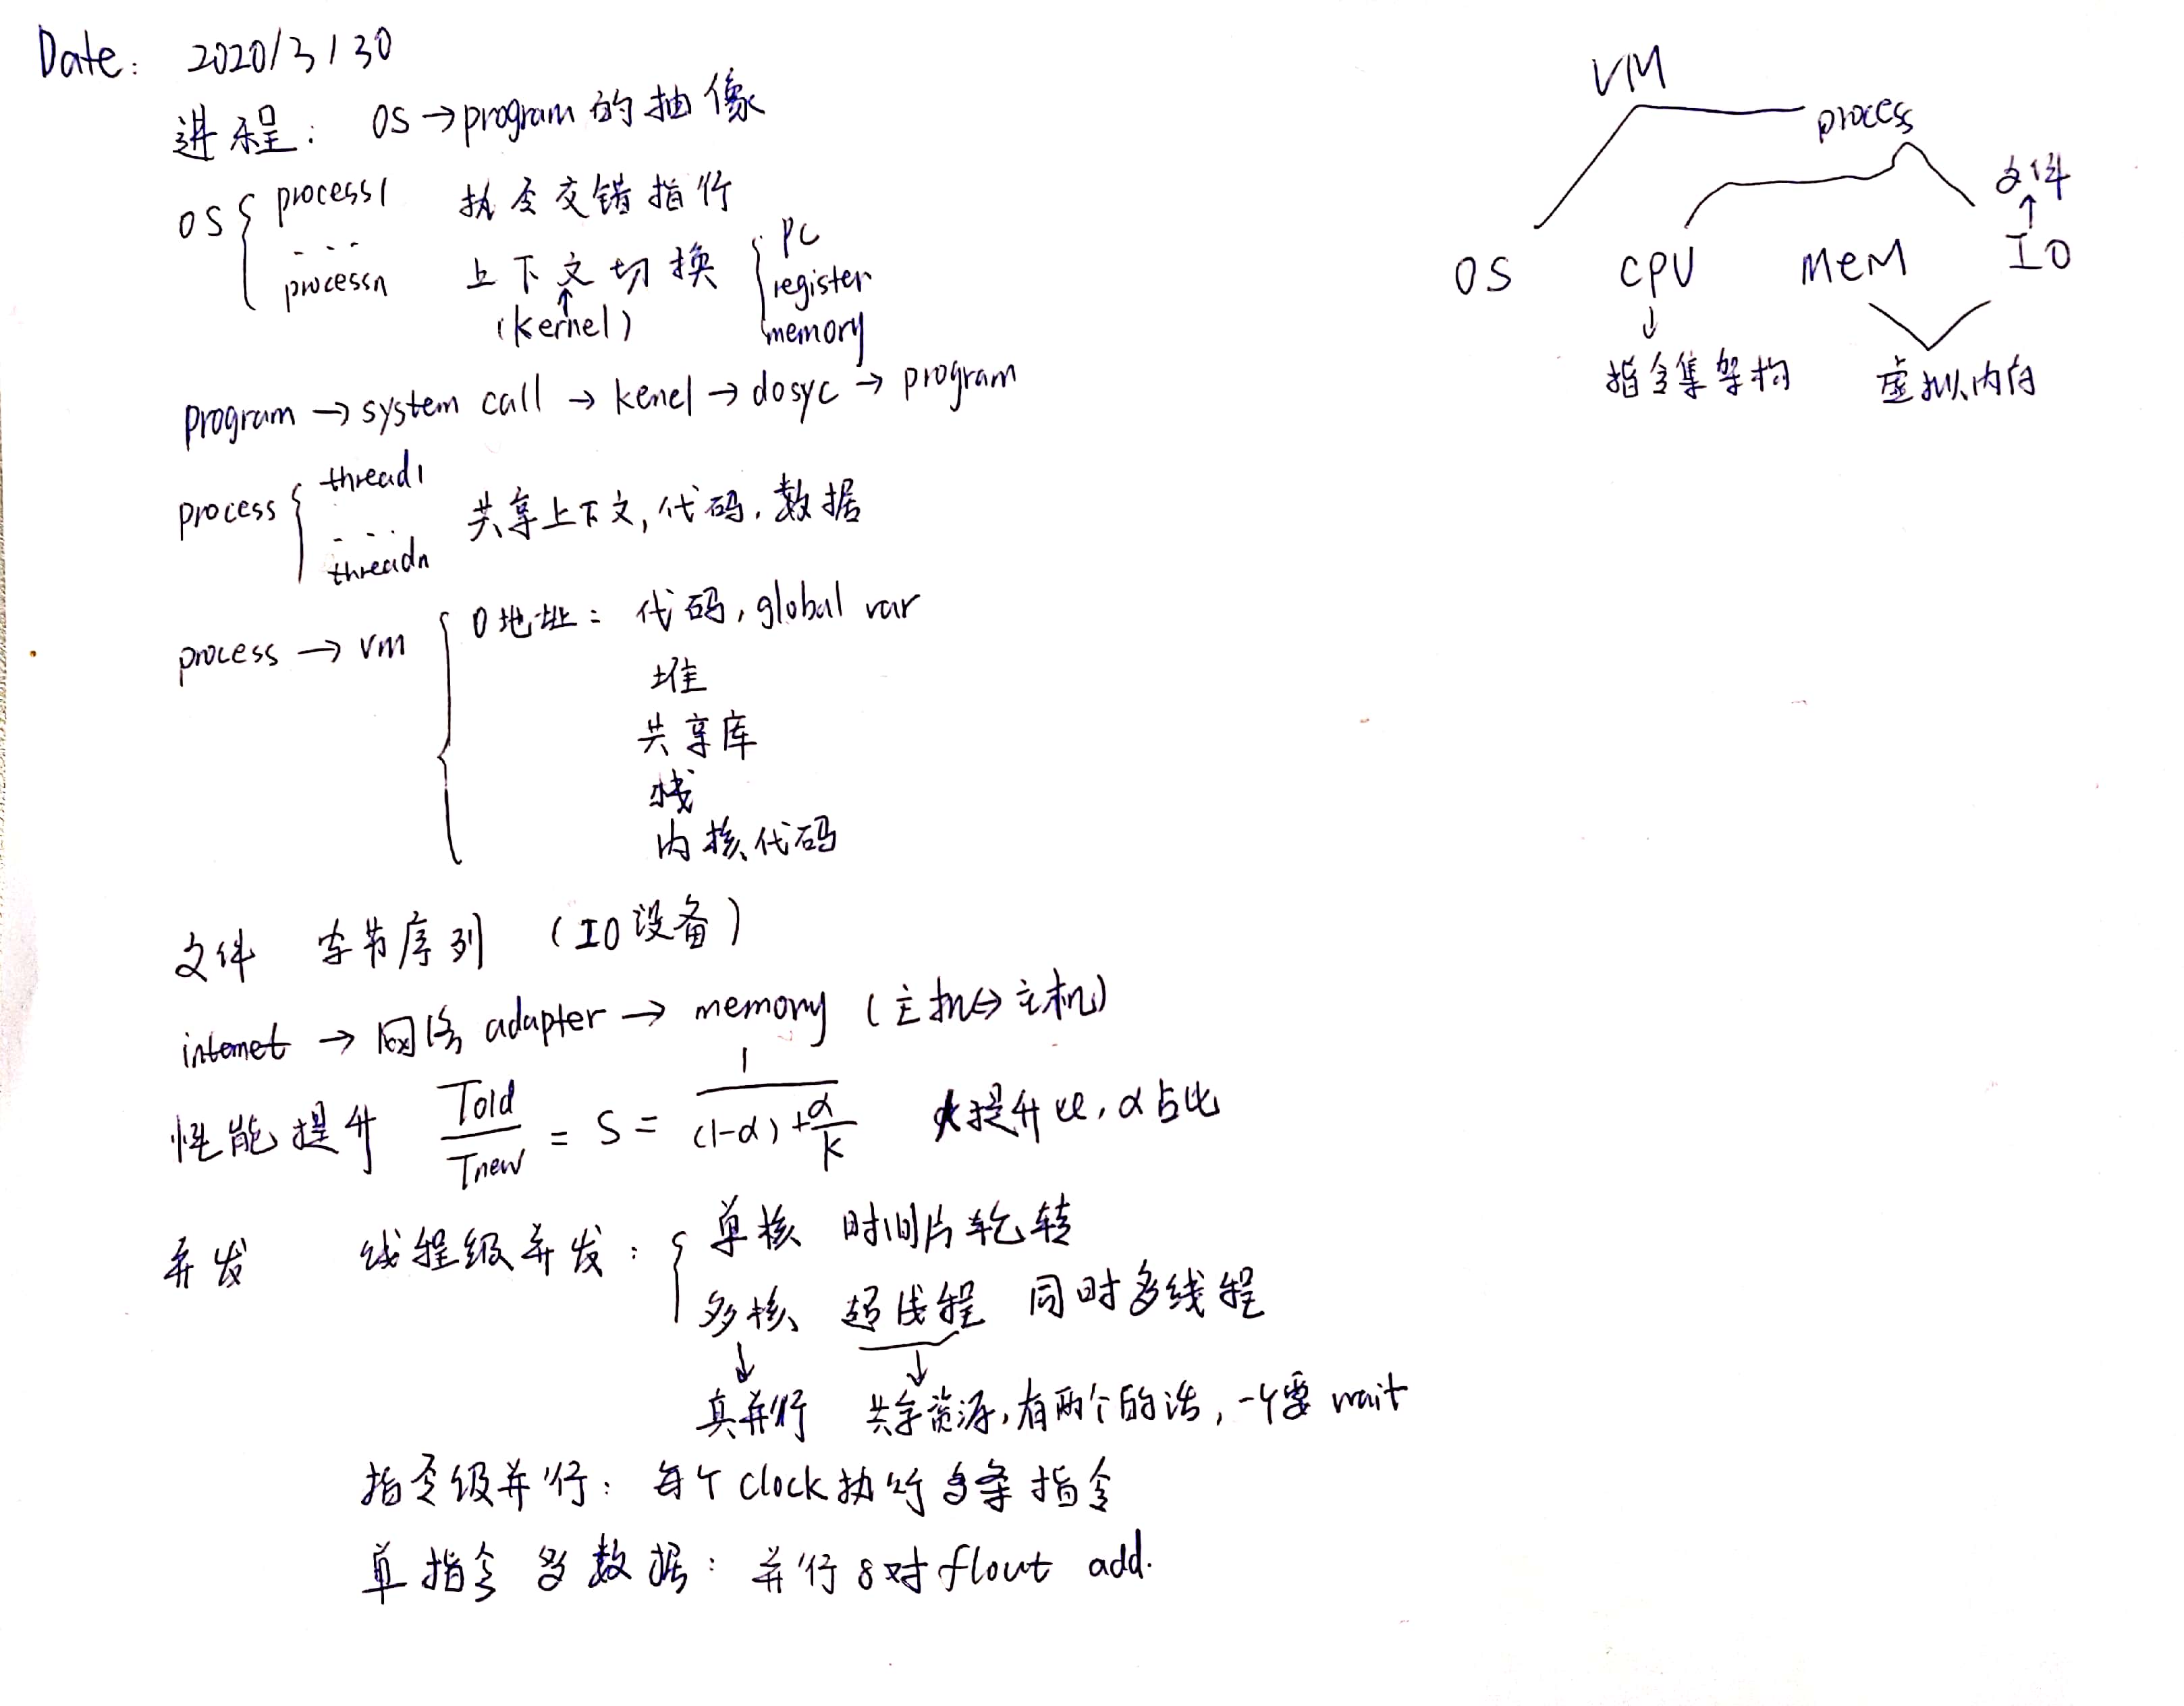 Date: 2020/3/30
进程: OS→program的抽像
OS { process1 执令交错指行
...
processn 上下文切换 { PC
register
memory
↑
(kernel)
program → system call → kenel → dosyc → program
process { thread1
... 共享上下文,代码.数据
threadn
process → vm { 0地址: 代码, global var
堆
共享库
栈
内核代码
文件 字节序列 (IO设备)
internet → 网络 adapter → memory (主机↔主机)
性能提升 Told/Tnew = S = 1/((1-α)+α/k) 提升比, α占比
并发 线程级并发: { 单核 时间片轮转
多核 超线程 同时多线程
↓ ↓
真并行 共享资源,有两个的话,一个要 wait
指令级并行: 每个 clock执行多条指令
单指令多数据: 并行8对 float add.
VM
process
文件
↑
OS CPU MeM IO
↓
指令集架构 虚拟内存